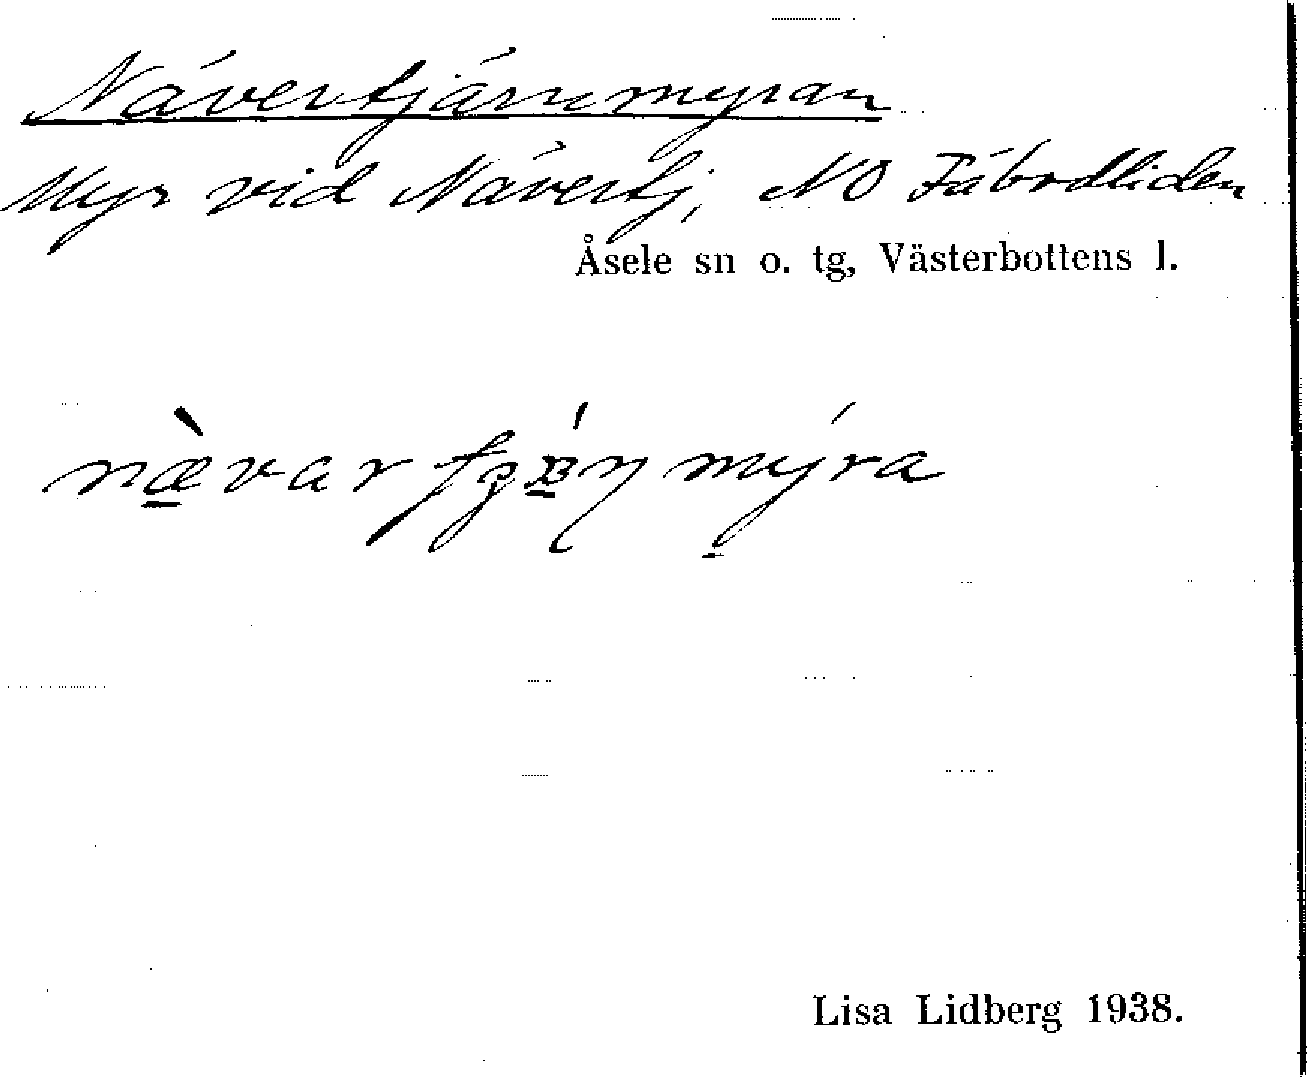 Nävertjärnmyran
Myr vid Nävertj, NO Fäbodliden
Åsele sn o. tg, Västerbottens l.
Lisa Lidberg 1938.